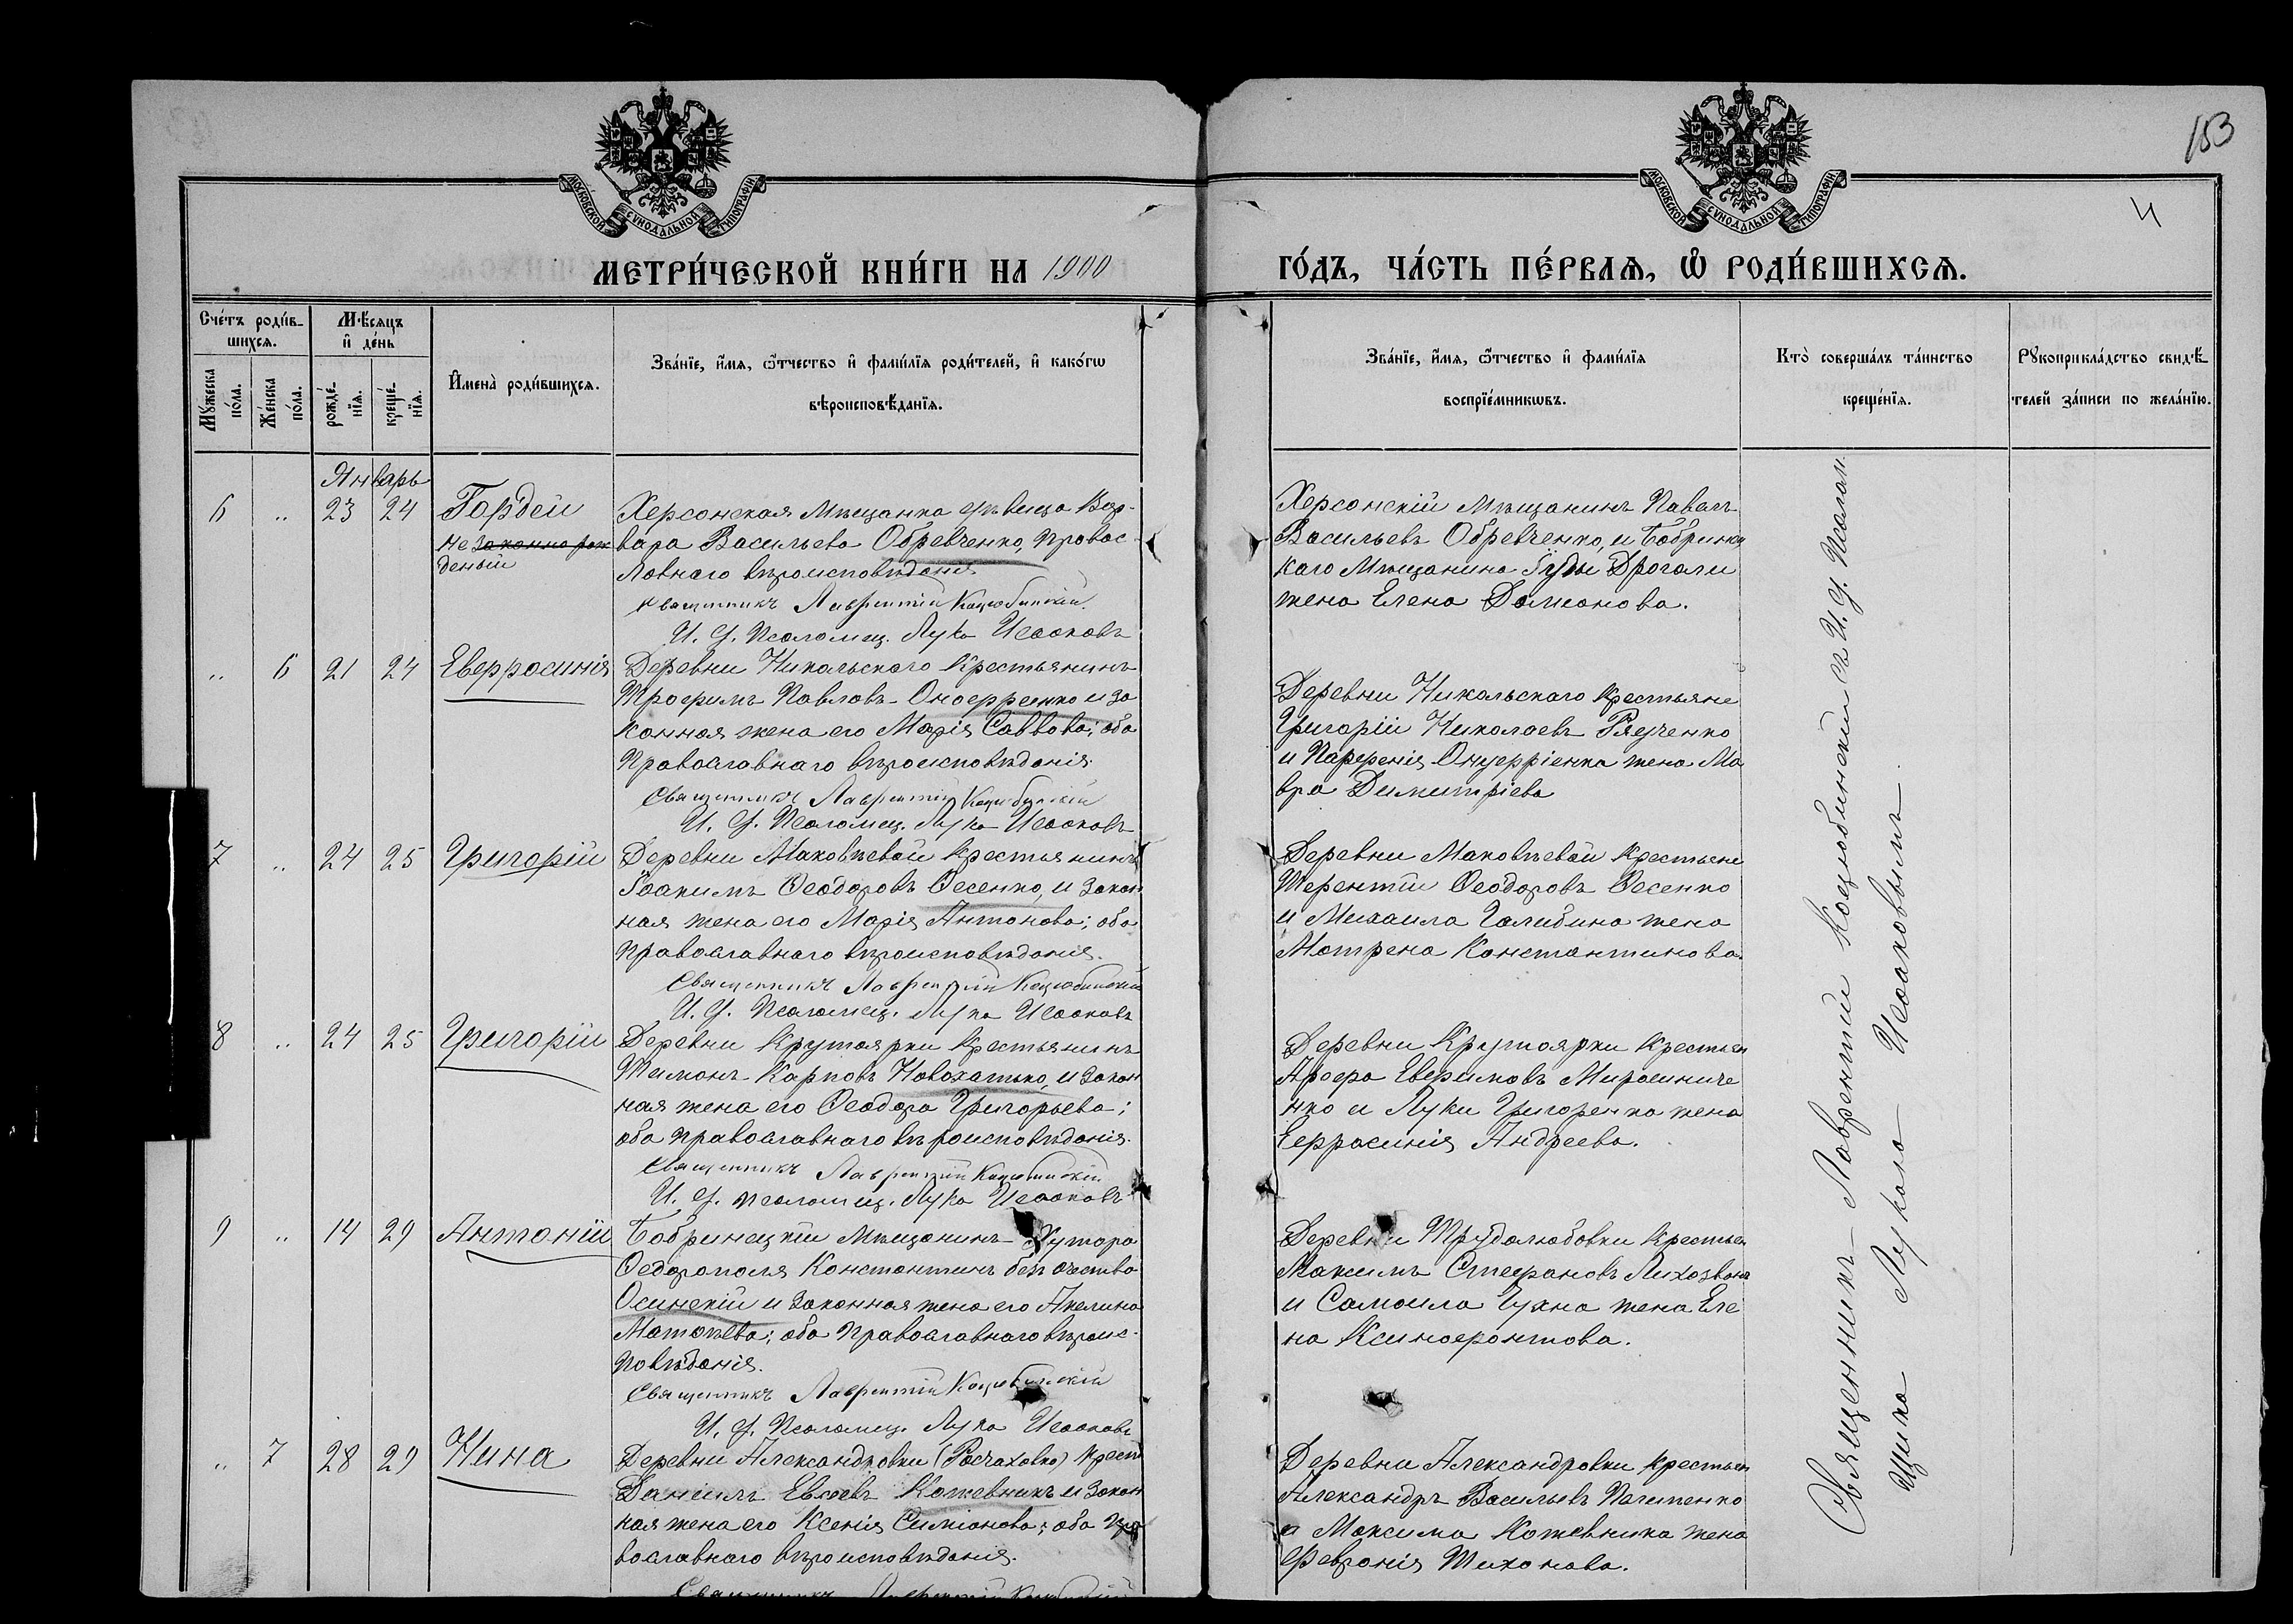 153
4
МОСКОВСКОЙ СѴНОДАЛЬНОЙ ТИПОГРАФІИ
МОСКОВСКОЙ СѴНОДАЛЬНОЙ ТИПОГРАФІИ
МЕТРИ́ЧЕСКОЙ КНИ́ГИ НА 1900
ГО́ДЪ, ЧА́СТЬ ПЕ́РВАѦ, Ѽ РОДИ́ВШИХСѦ.
Сче́тъ роди́в-
шихсѧ.
Мꙋ́жеска
по́ла.
Же́нска
по́ла.
Мѣ́сяцъ
и҆ де́нь
рожде́-
нїѧ.
креще́-
нїѧ.
И҆мена̀ роди́вшихсѧ.
Зва́нїе, и҆́мѧ, ѻ҆́тчество и҆ фами́лїѧ роди́телей, и҆ како́гѡ
вѣроисповѣ́данїѧ.
Зва́нїе, и҆́мѧ, ѻ҆́тчество и҆ фами́лїѧ
воспрїе́мникѡвъ.
Кто̀ соверша́лъ та́инство
креще́нїѧ.
Рꙋкоприкла́дство свидѣ́-
телей за́писи по жела́нїю.
Январь
6 „ 23 24 Гордей
не законно рож
деный
Херсонская Мѣщанка дѣвица Вар-
вара Васильева Обревченко, правос-
лавнаго вѣроисповѣданія
Священникъ Лаврентій Коцюбинскій
И. д. Псаломщ. Лука Исааковъ
Херсонскій Мѣщанинъ Павелъ
Васильевъ Обревченко, и Бобринец
каго Мѣщанина Іуды Драгали
жена Елена Дамианова.
„ 6 21 24 Евфросинія
Деревни Никольскаго Крестьянинъ
Трофимъ Павловъ Оноффренко и за
конная жена его Марія Саввова; оба
православнаго вѣроисповѣданія
Священникъ Лаврентій Коцюбинскій
И. д. Псаломщ. Лука Исааковъ
Деревни Никольскаго Крестьяне
Григорій Николаевъ
и Парфенія Онуффріенка жена Ма
вра Димитріева
7 „ 24 25 Григорій
Деревни Маковѣевой Крестьянинъ
Іоакимъ Ѳеодоровъ Ѳесенко, и закон
ная жена его Марія Антонова; оба
православнаго вѣроисповѣданія.
Священникъ Лаврентій Коцюбинскій
И. д. Псаломщ. Лука Исааковъ
Деревни Маковѣевой Крестьяне
Терентій Ѳеодоровъ Ѳесенко
и Михаила Галибина жена
Матрена Константинова.
8 „ 24 25 Григорій
Деревни Крутоярки Крестьянинъ
Тимонъ Карповъ Новохатько, и закон
ная жена его Ѳеодора Григорьева;
оба православнаго вѣроисповѣданія.
Священникъ Лаврентій Коцюбинскій
И. д. Псаломщ. Лука Исааковъ
Деревни Крутоярки Крестьян
Евфимовъ Мирошниче
нко и Луки Григоренка жена
Еффросинія Андреева.
9 „ 14 29 Антоній
Бобринецкій Мѣщанинъ Хутора
Ѳедорополя Константинъ безъ очества
Осинскій и законная жена его Акелина
Матвѣева; оба православнаго вѣроис-
повѣданія.
Священникъ Лаврентій Коцюбинскій
И. д. Псаломщ. Лука Исааковъ
Деревни Трудолюбовки Крестьян
Максимъ Стефановъ Лихозвонъ
и Самоила Чухна жена Еле
на Ксинофонтова.
„ 7 28 29 Нина
Деревни Александровки (Росчаховка) крест
Даніилъ Евсеевъ Кожевникъ и закон
ная жена его Ксенія Симіонова; оба пра
вославнаго вѣроисповѣданія.
Священникъ Лаврентій Коцюбинскій
Деревни Александровки крестьян
Александръ Васильевъ
и Максима Кожевника жена
Февронія Тихонова.
Священникъ Лаврентій Коцюбинскій съ И. д. Псалом
щика Лукою Исааковымъ